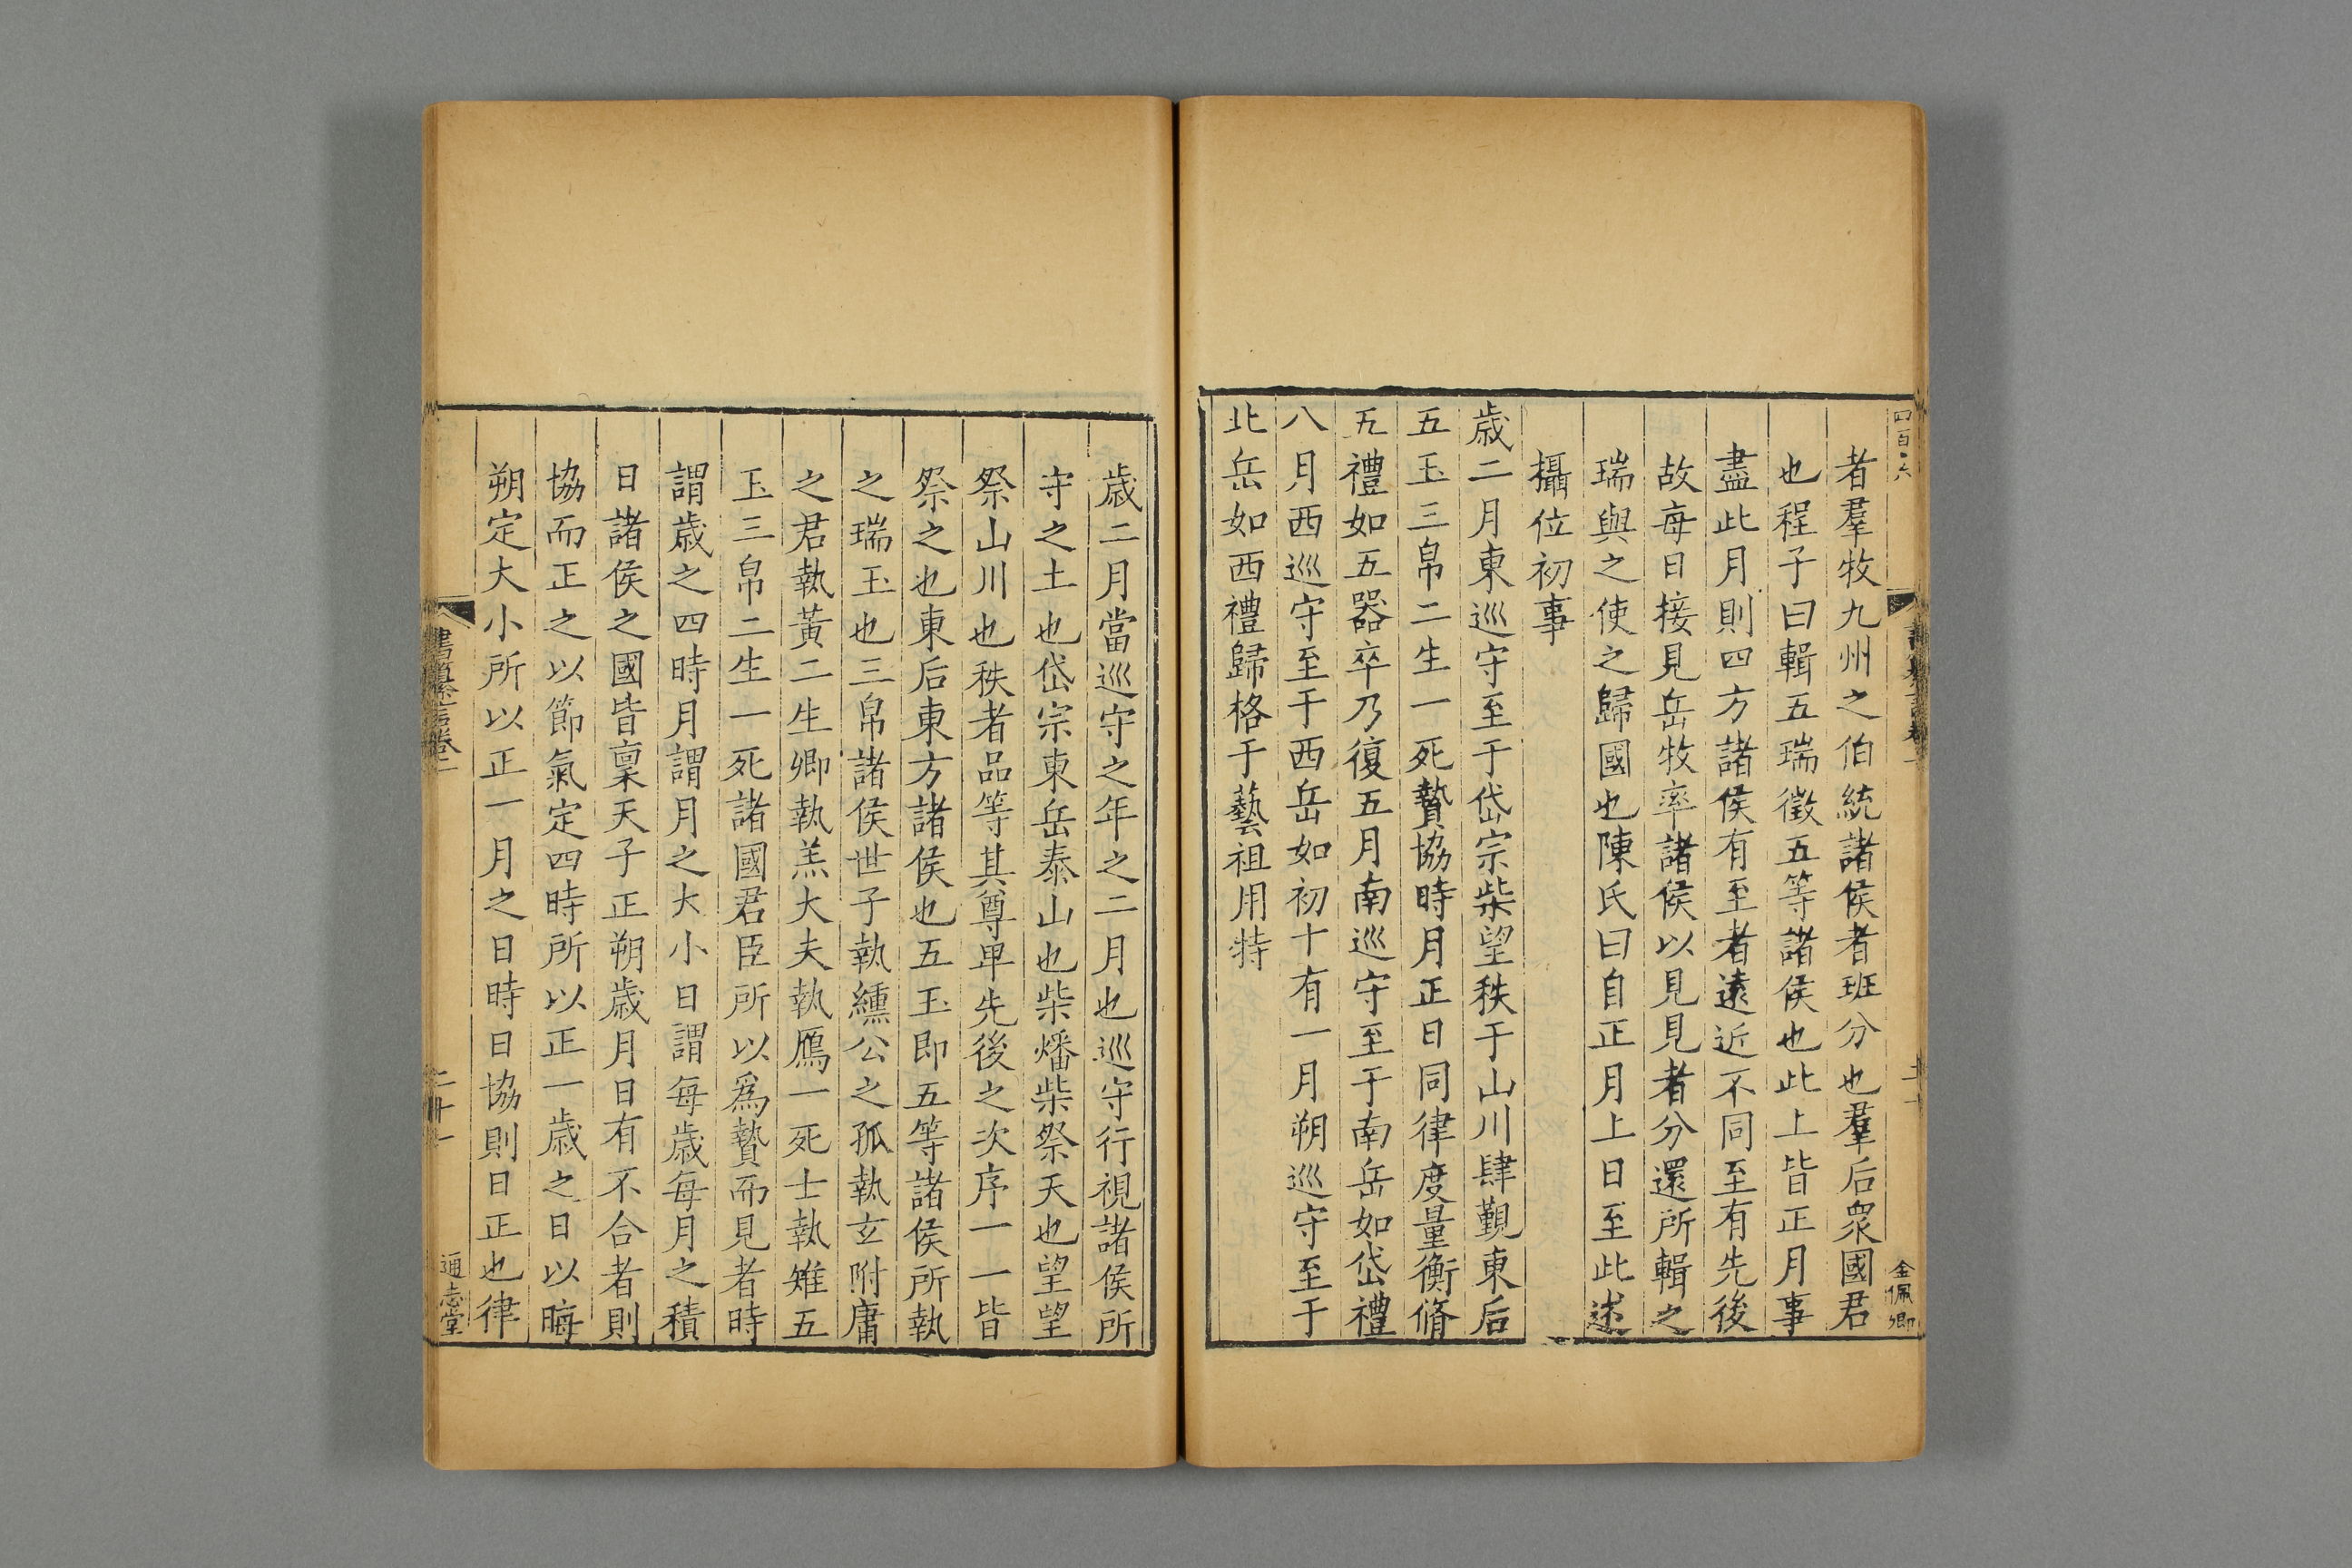 四百六
金佩卿
者羣牧九州之伯統諸侯者班分也羣后衆國君
也程子曰輯五瑞徵五等諸侯也此上皆正月事
盡此月則四方諸侯有至者遠近不同至有先後
故每日接見岳牧率諸侯以見見者分還所輯之
瑞與之使之歸國也陳氏曰自正月上日至此述
攝位初事
歲二月東巡守至于岱宗柴望秩于山川肆覲東后
五玉三帛二生一死贄協時月正日同律度量衡脩
五禮如五器卒乃復五月南巡守至于南岳如岱禮
八月西巡守至于西岳如初十有一月朔巡守至于
北岳如西禮歸格于藝祖用特
歲二月當巡守之年之二月也巡守行視諸侯所
守之土也岱宗東岳泰山也柴燔柴祭天也望望
祭山川也秩者品等其尊卑先後之次序一一皆
祭之也東后東方諸侯也五玉即五等諸侯所執
之瑞玉也三帛諸侯世子執纁公之孤執玄附庸
之君執黃二生卿執羔大夫執鴈一死士執雉五
玉三帛二生一死諸國君臣所以爲贄而見者時
謂歲之四時月謂月之大小日謂每歲每月之積
日諸侯之國皆稟天子正朔歲月日有不合者則
協而正之以節氣定四時所以正一歲之日以晦
朔定大小所以正一月之日時日協則日正也律
書纂言卷一
二十一
通志堂